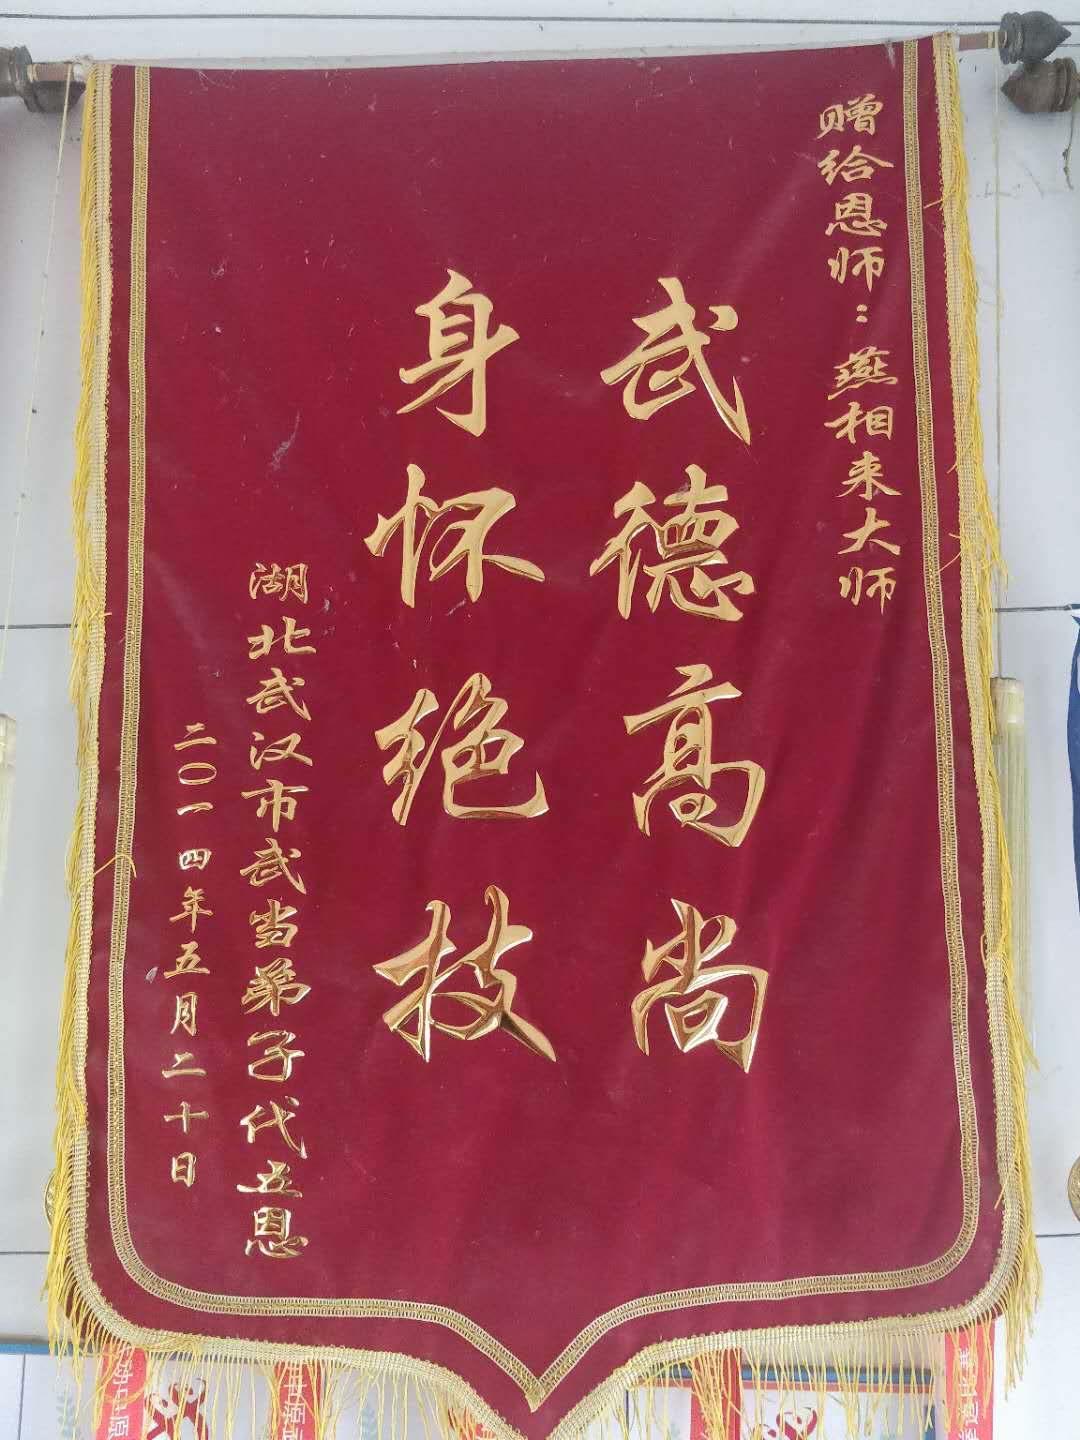 赠给恩师：燕相来大师
武德高尚
身怀绝技
湖北武汉市武当弟子代五恩
二〇一四年五月二十日